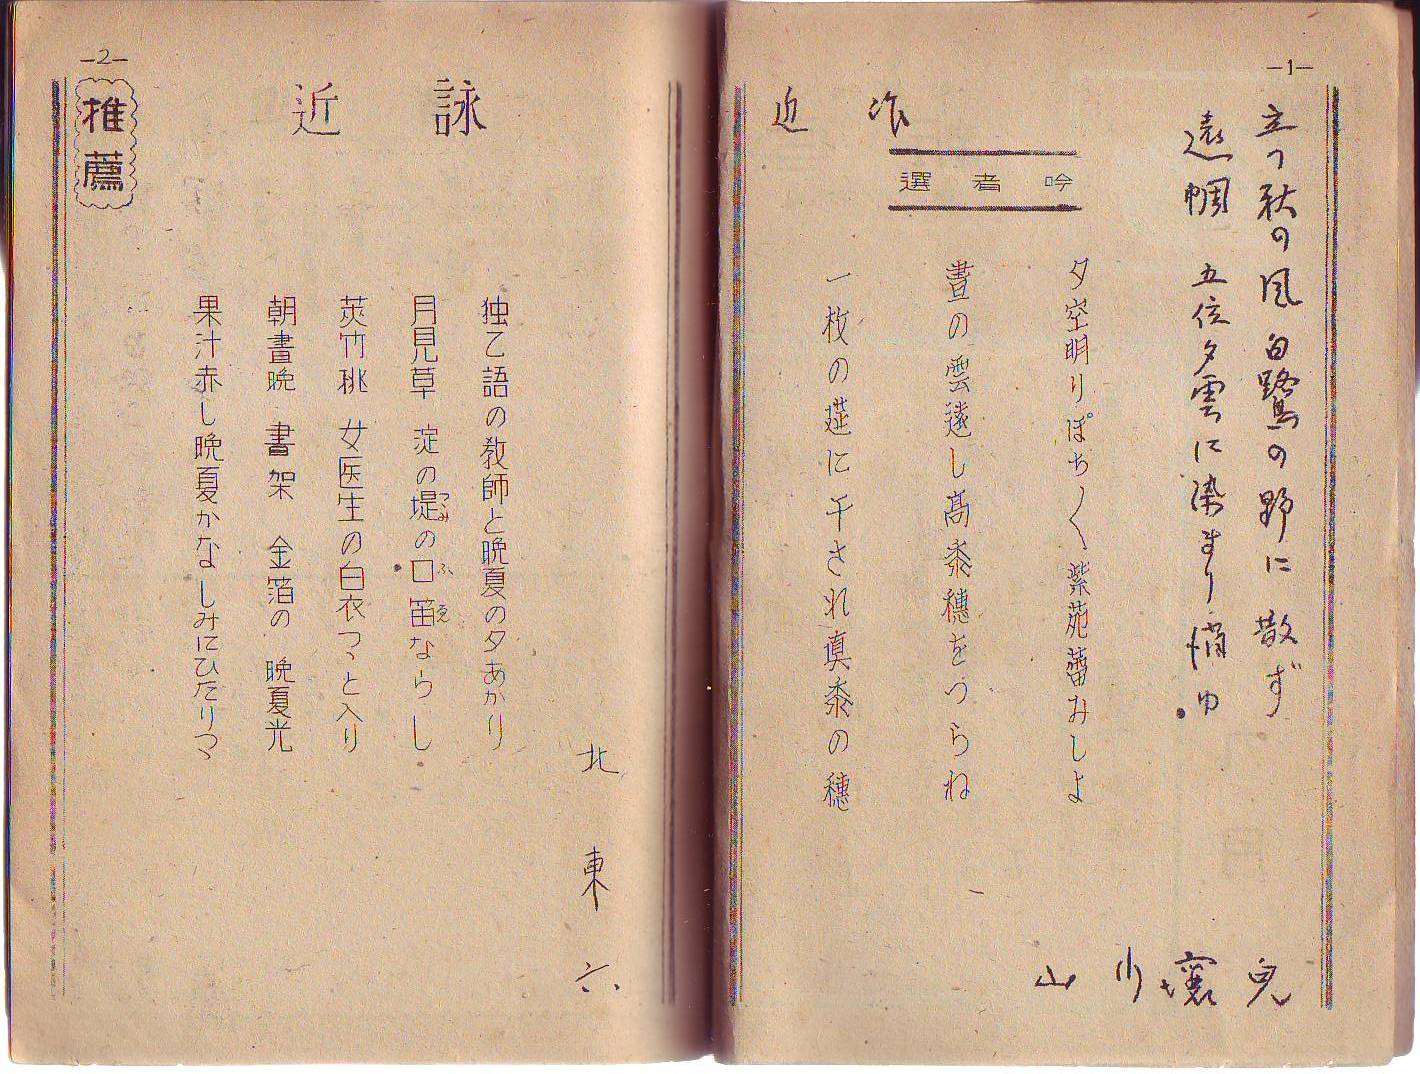 —1—
立つ秋の風白鷺の野に散ず
遠幗 五位夕雲に染まり悄ゆ
近作
選者吟
夕空明りぽち〱紫苑蕾みしよ
晝の雲遠し髙黍穗をつらね
一枚の莚に干され真黍の穗
山
—2—
推薦
近詠
北東六
独乙語の教師と晩夏の夕あかり
月見草 淀の堤の口笛ならし
つつみ
ふゑ
莢竹桃 女医生の白衣つゝと入り
朝書晩 書架 金箔の 晩夏光
果汁赤し晩夏かなしみにひたりつゝ